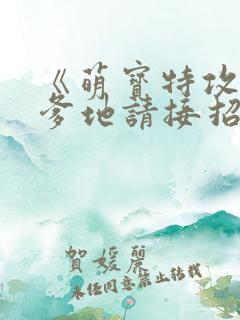 《萌寶特攻
爹地請接招
賀媛麗
未經同意禁止轉載